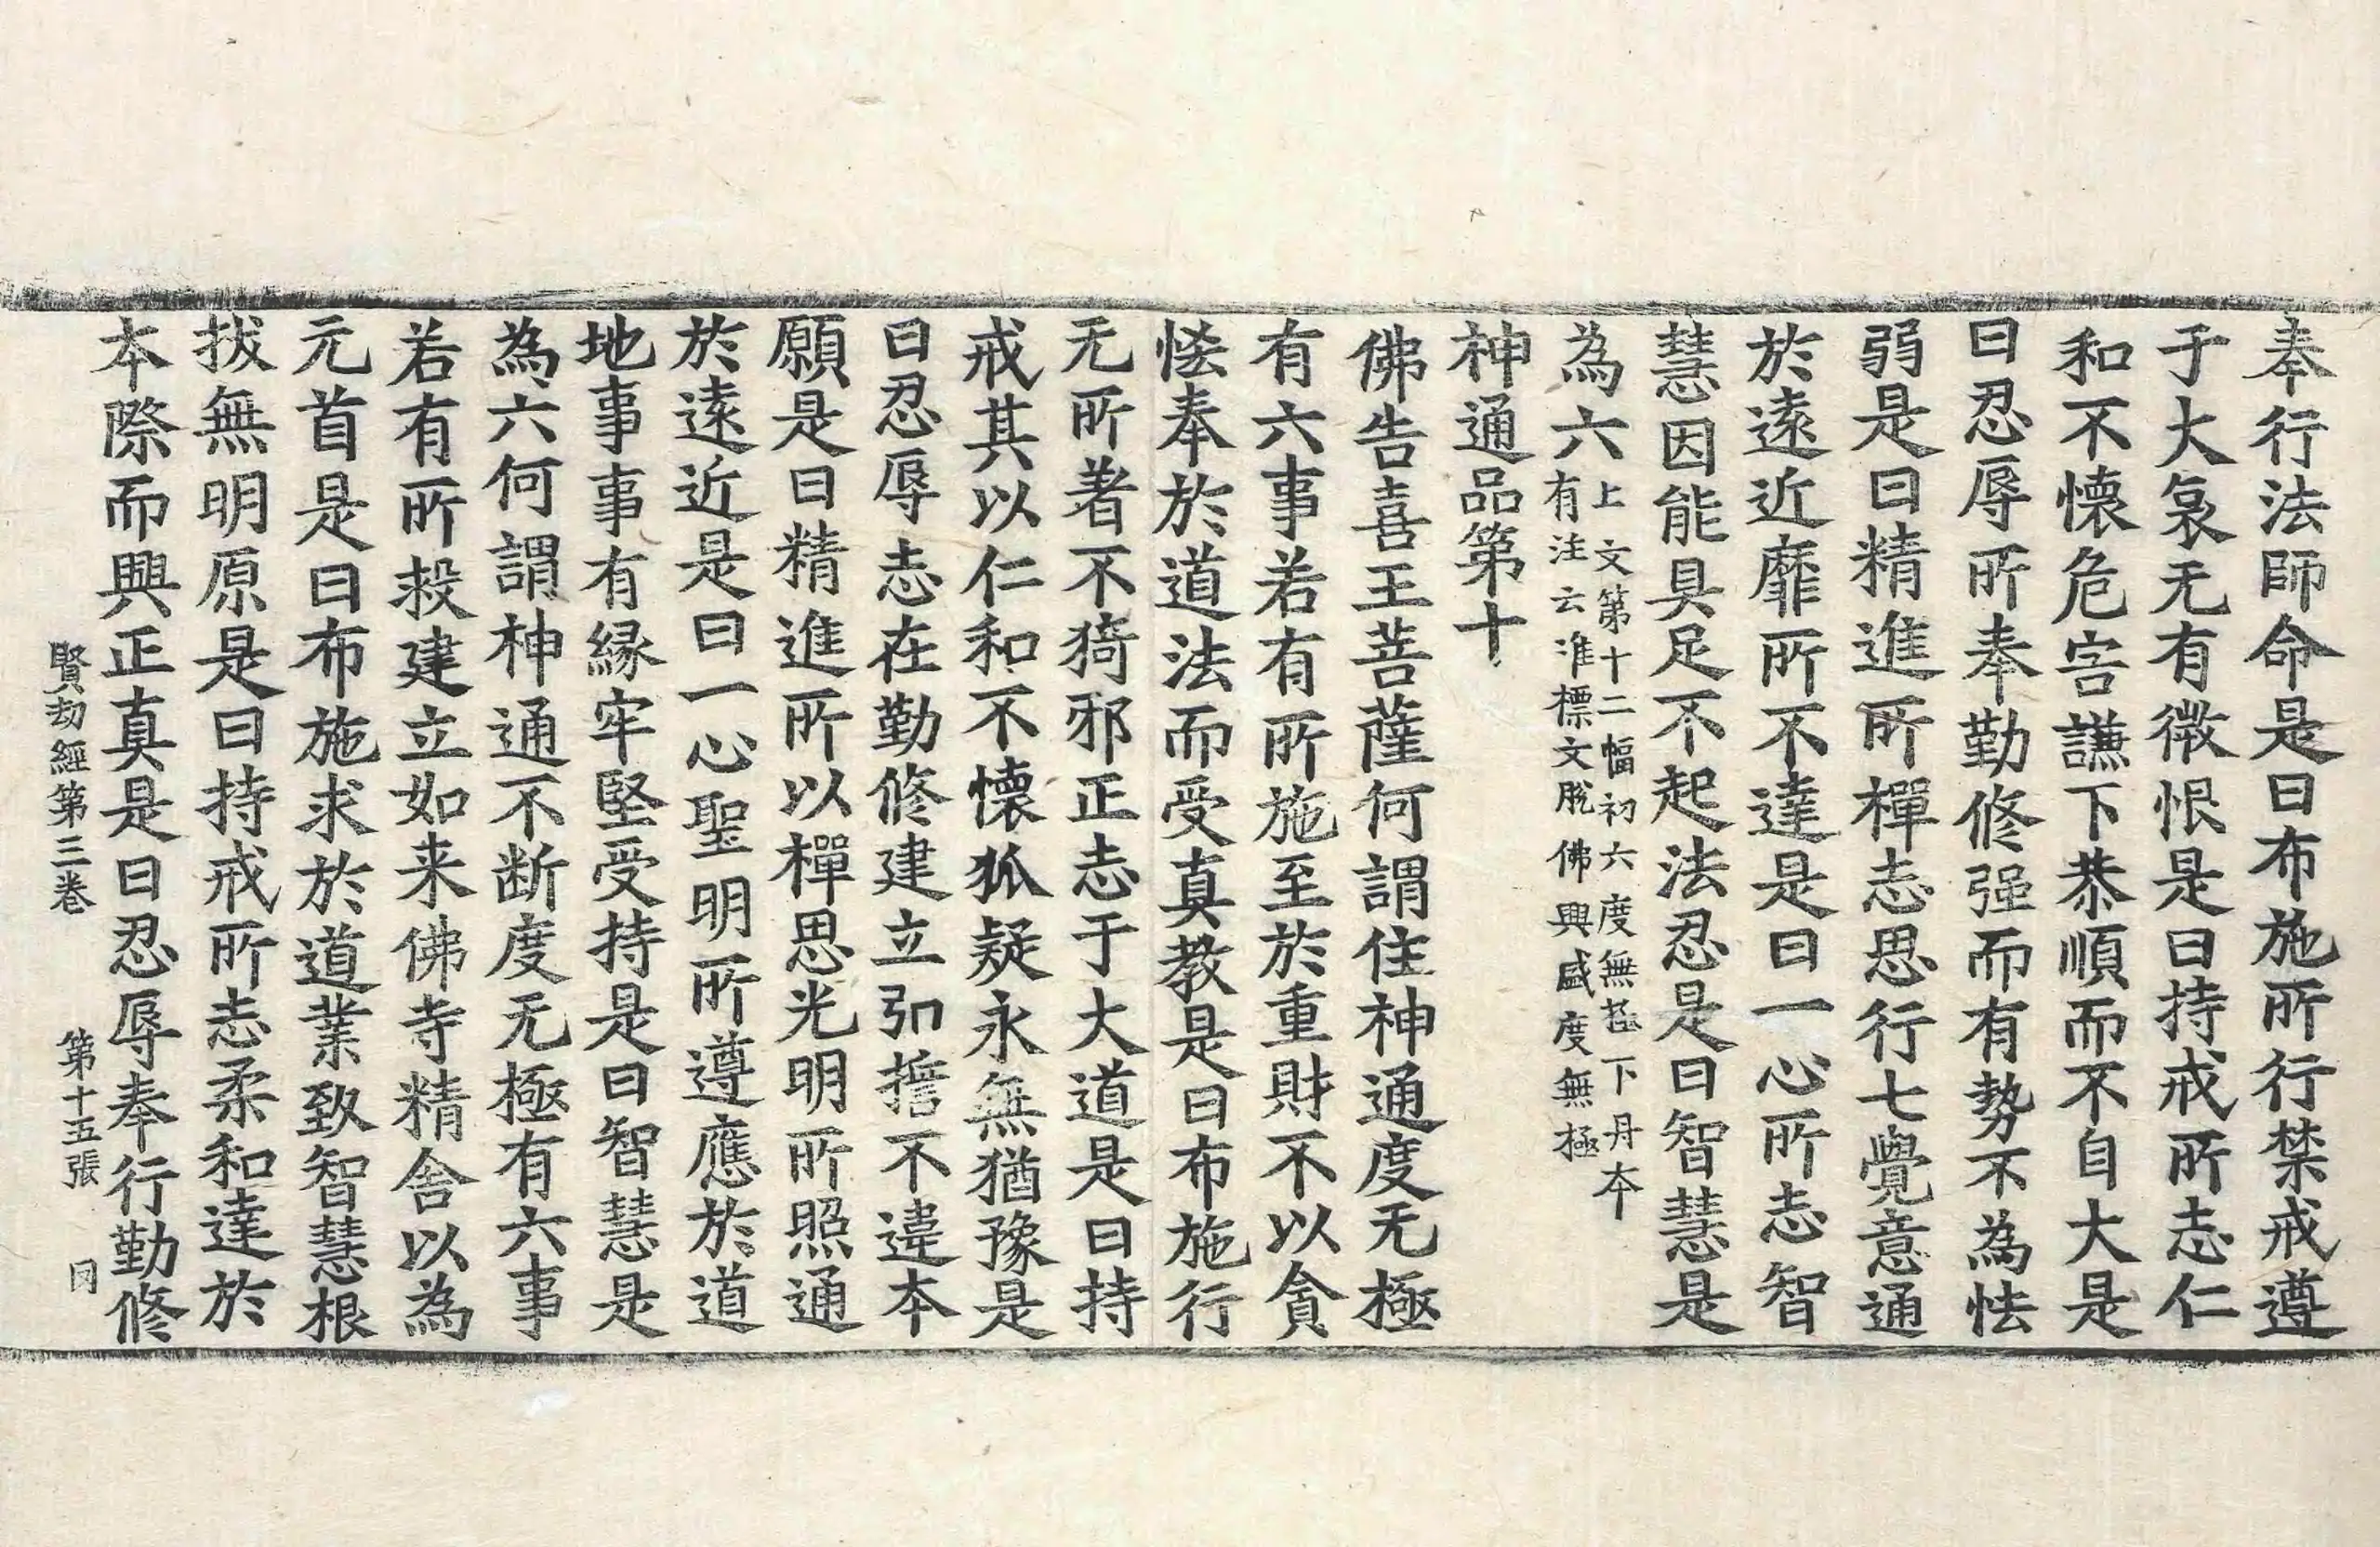 奉行法師命是曰布施所行禁戒遵
于大哀无有微恨是曰持戒所志仁
和不懷危害謙下恭順而不自大是
曰忍辱所奉勤修强而有勢不為怯
弱是曰精進所禪志思行七覺意通
於遠近靡所不達是曰一心所志智
慧因能具足不起法忍是曰智慧是
為六
上文第十二幅初六度無極下丹本
有注云准標文脫佛興盛度無極
神通品第十
佛告喜王菩薩何謂住神通度无極
有六事若有所施至於重財不以貪
惏奉於道法而受真教是曰布施行
无所著不猗邪正志于大道是曰持
戒其以仁和不懷狐疑永無猶豫是
曰忍辱志在勤修建立弘擔不違本
願是曰精進所以禪思光明所照通
於遠近是曰一心聖明所遵應於道
地事事有緣牢堅受持是曰智慧是
為六何謂神通不断度无極有六事
若有所救建立如来佛寺精舍以為
元首是曰布施求於道業致智慧根
拔無明原是曰持戒所志柔和達於
本際而興正真是曰忍辱奉行勤修
賢劫經第三卷 第十五張 岡